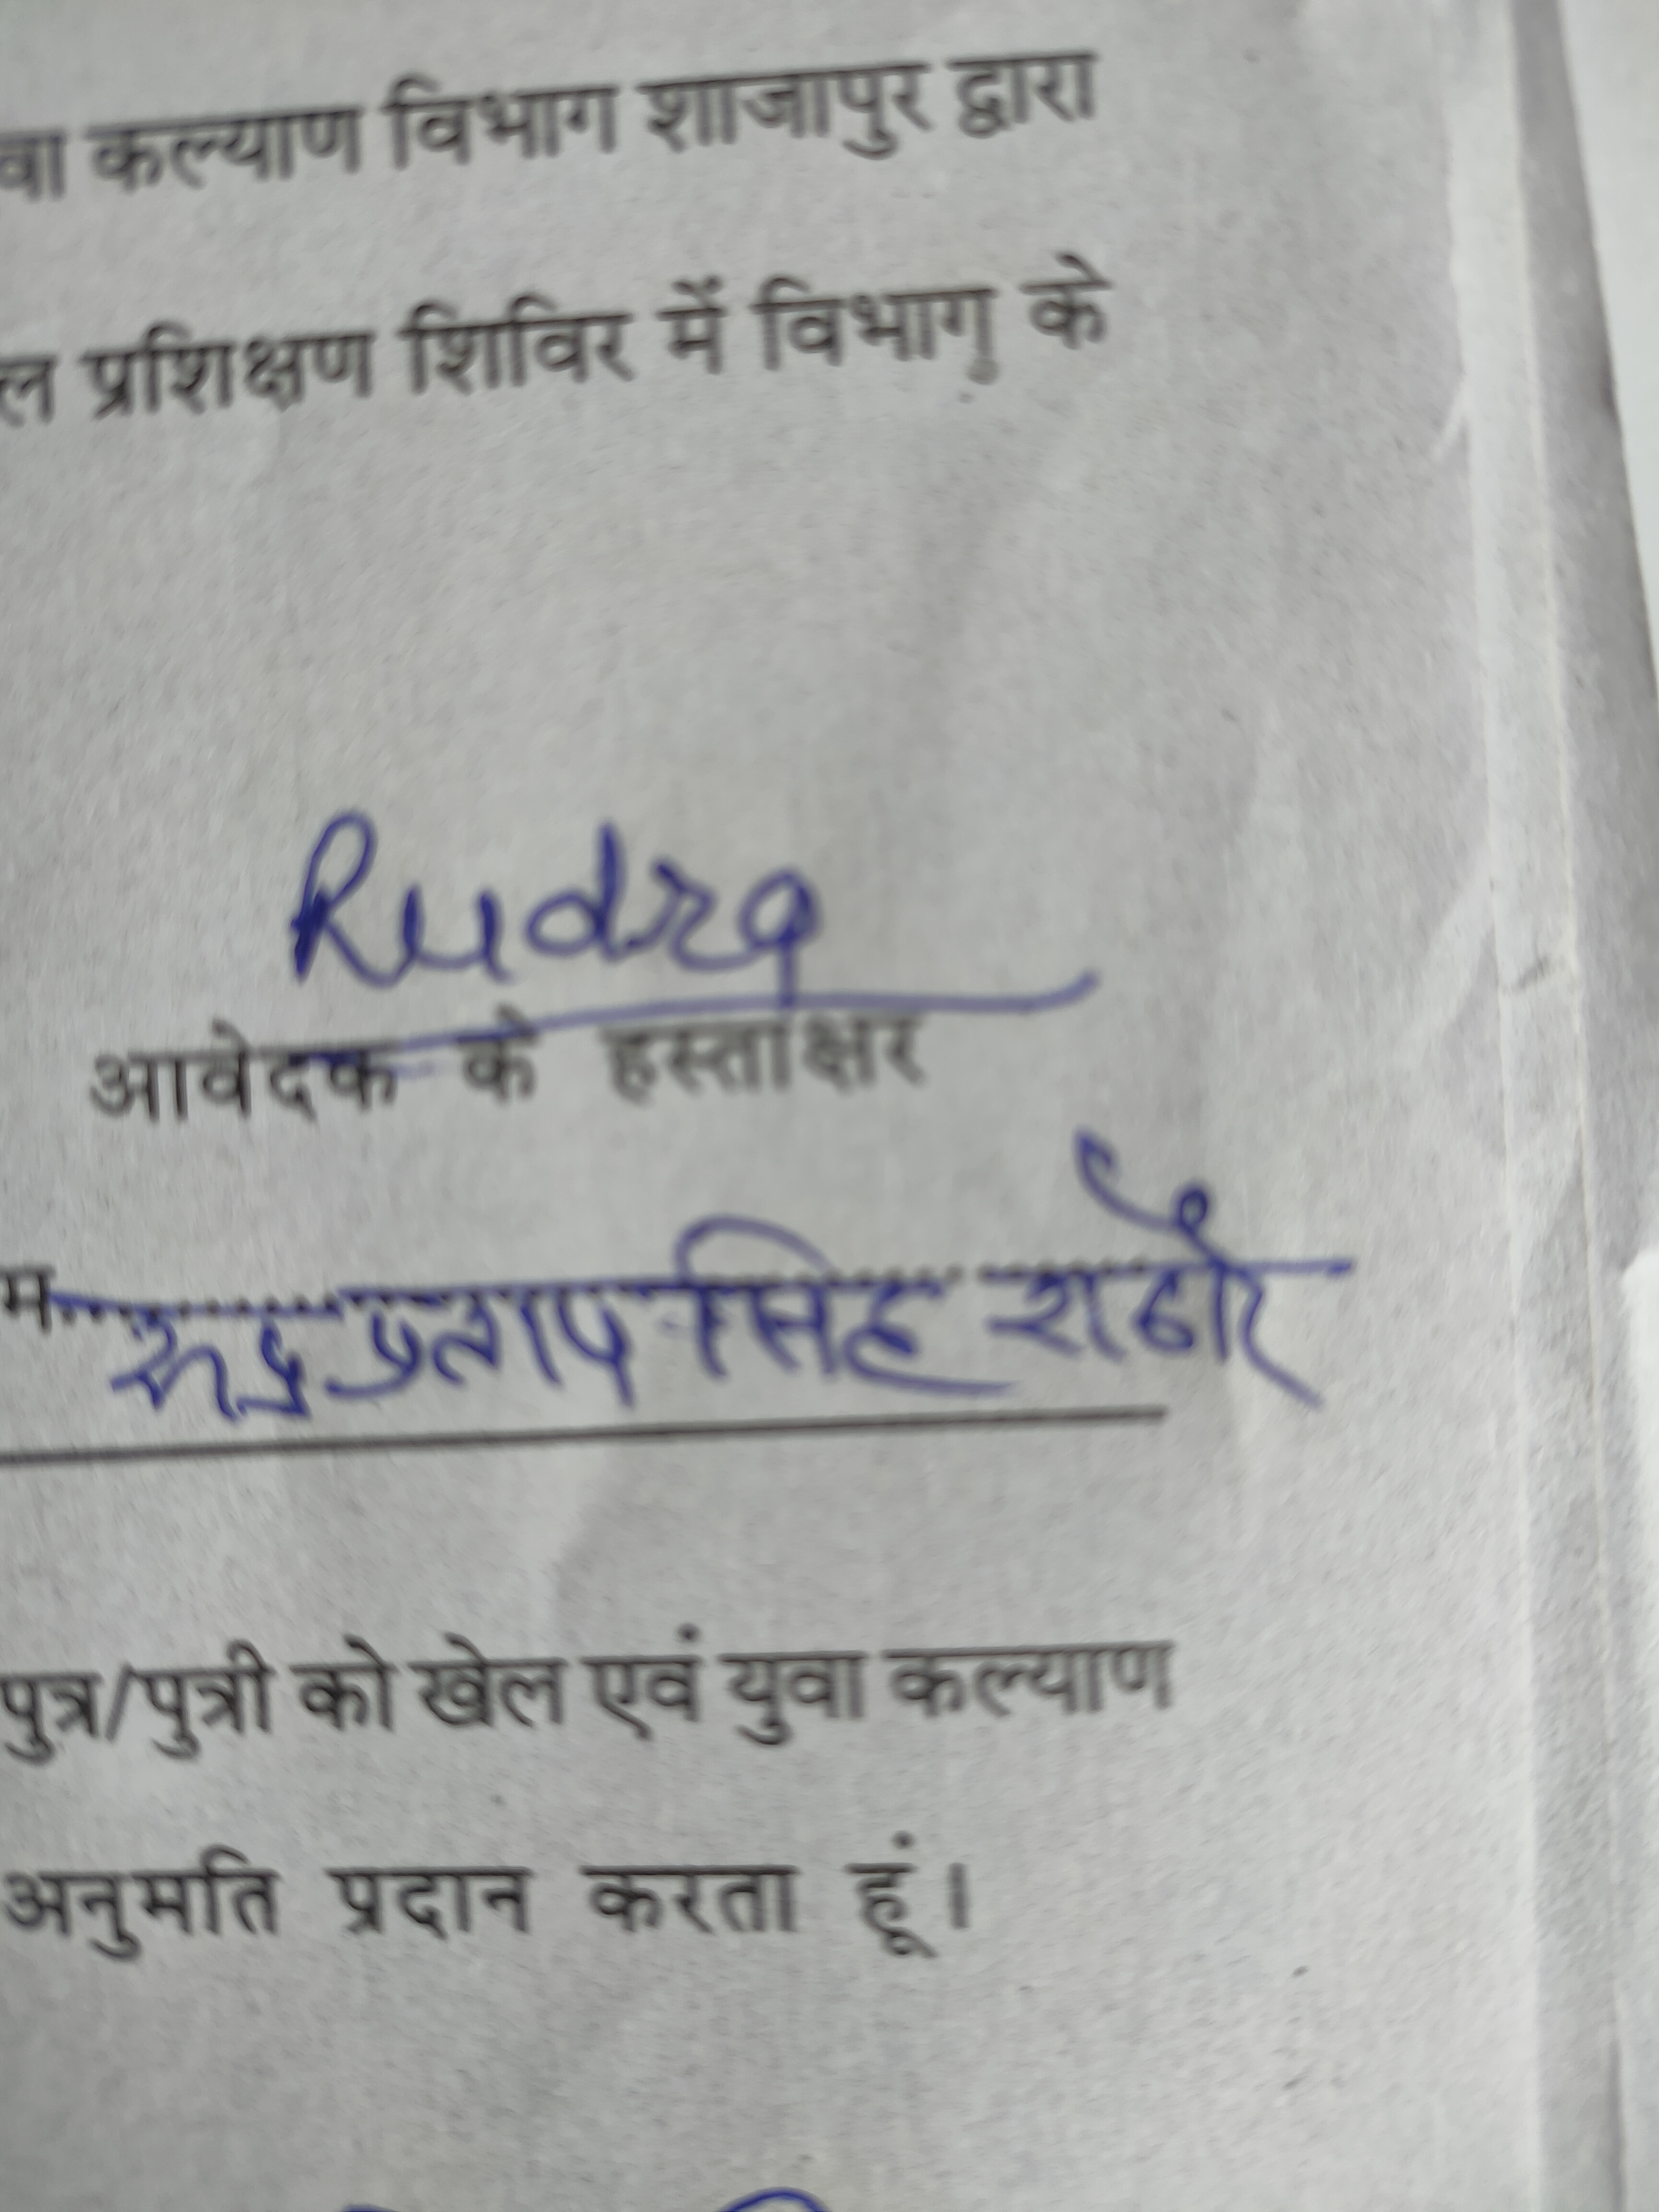 वा कल्याण विभाग शाजापुर द्वारा
ल प्रशिक्षण शिविर में विभाग के
Rudra
आवेदक के हस्ताक्षर
म......रूद्र प्रताप सिंह राठौर
पुत्र/पुत्री को खेल एवं युवा कल्याण
अनुमति प्रदान करता हूं।